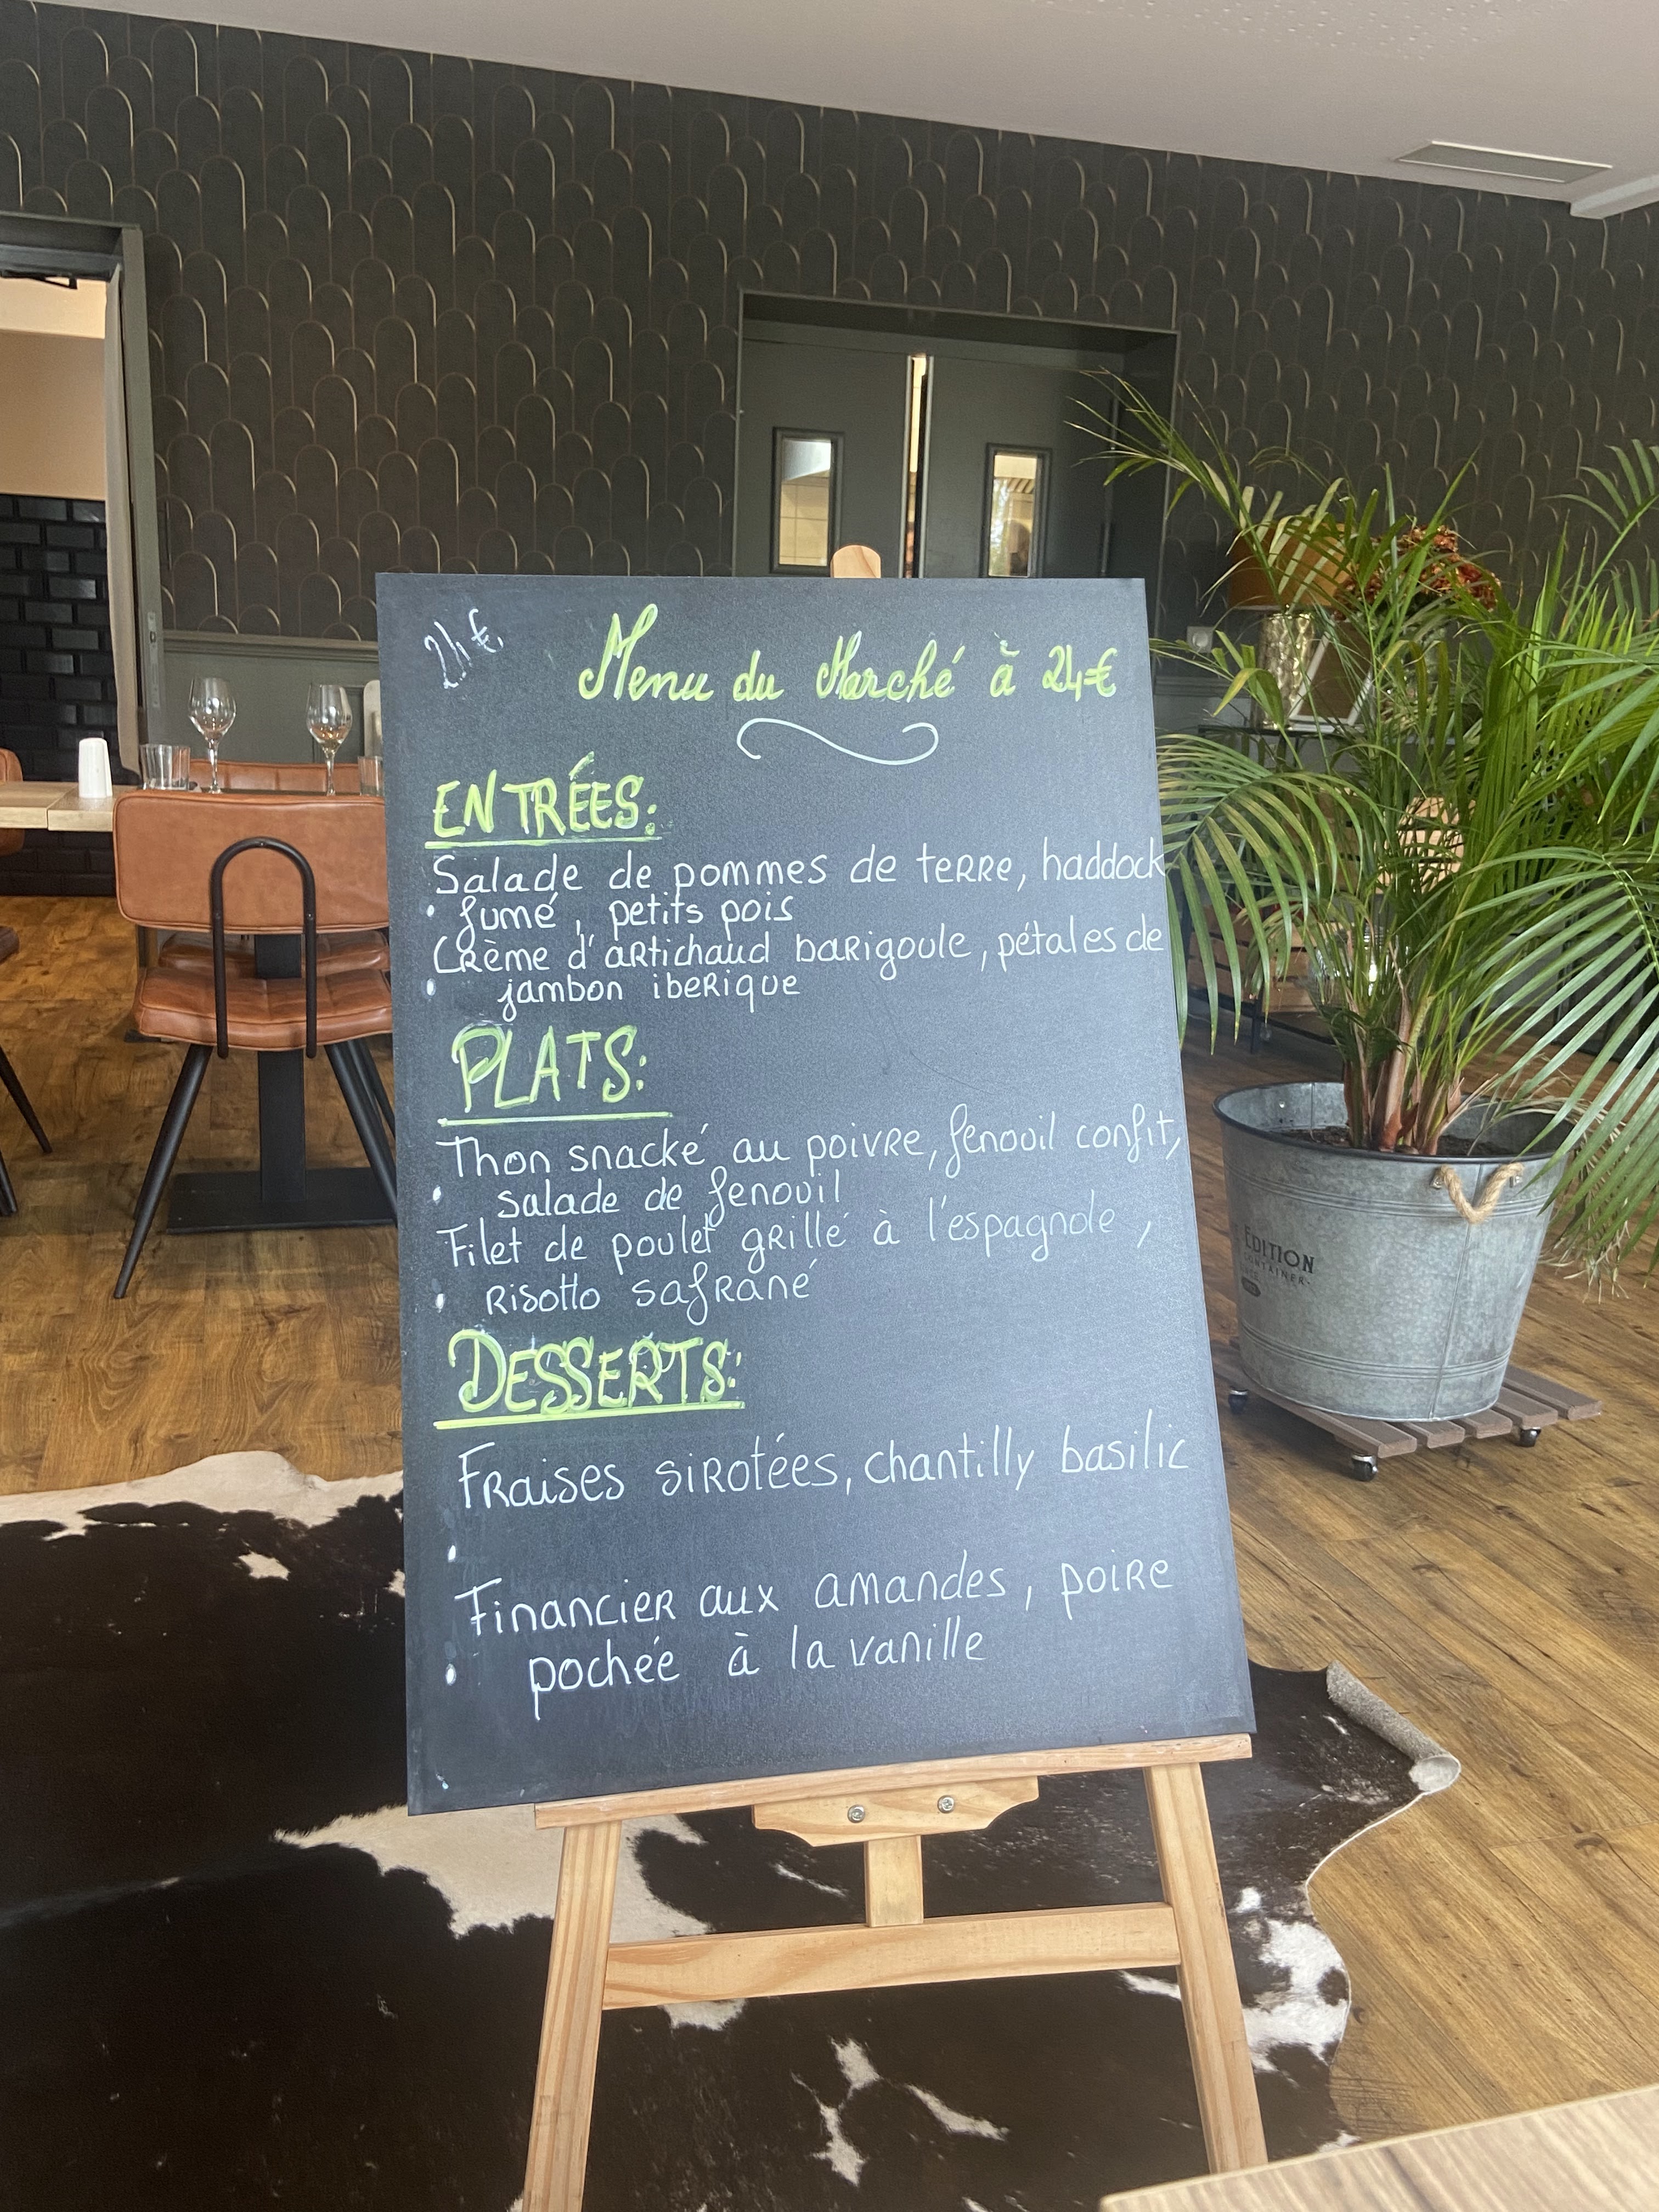 24€
Menu du Marché à 24€
ENTRÉES:
Salade de pommes de terre, haddock
• fumé, petits pois
Crème d'artichaud barigoule, pétales de
• jambon iberique
PLATS:
Thon snacké au poivre, fenouil confit,
• salade de fenouil
Filet de poulet grillé à l'espagnole,
• risotto safrané
DESSERTS:
Fraises sirotées, chantilly basilic
•
Financier aux amandes, poire
• pochée à la vanille
EDITION
CONTAINER